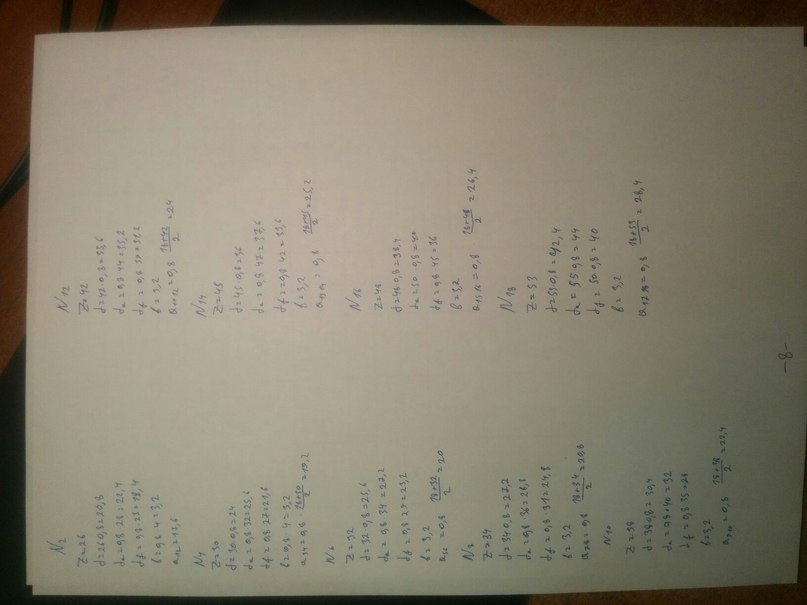 N2
Z=26
d=26·0,8=20,8
dₐ=0,8·28=22,4
d_f=0,8·23=18,4
b=0,8·4=3,2
N4
Z=30
d=30·0,8=24
dₐ=0,8·32=25,6
d_f=0,8·27=21,6
b=0,8·4=3,2
a₃₄=0,8 (18+30)/2=19,2
N6
Z=32
d=32·0,8=25,6
dₐ=0,8·34=27,2
d_f=0,8·27=23,2
b=3,2
a₅₆=0,8 (18+32)/2=20
N8
Z=34
d=34·0,8=27,2
dₐ=0,8·36=28,8
d_f=0,8·31=24,8
b=3,2
a₇₈=0,8 (18+34)/2=20,8
N10
Z=38
d=38·0,8=30,4
dₐ=0,8·40=32
d_f=0,8·35=28
b=3,2
a₉₁₀=0,8 (18+38)/2=22,4
N12
Z=42
d=42·0,8=33,6
dₐ=0,8·44=35,2
d_f=0,8·39=31,2
b=3,2
a₁₁₁₂=0,8 (18+42)/2=24
N14
Z=45
d=45·0,8=36
dₐ=0,8·47=37,6
d_f=0,8·42=33,6
b=3,2
a₁₃₁₄=0,8 (18+45)/2=25,2
N16
Z=48
d=48·0,8=38,4
dₐ=50·0,8=40
d_f=0,8·45=36
b=3,2
a₁₅₁₆=0,8 (18+48)/2=26,4
N18
Z=53
d=53·0,8=42,4
dₐ=55·0,8=44
d_f=50·0,8=40
b=3,2
a₁₇₁₈=0,8 (18+53)/2=28,4
-8-